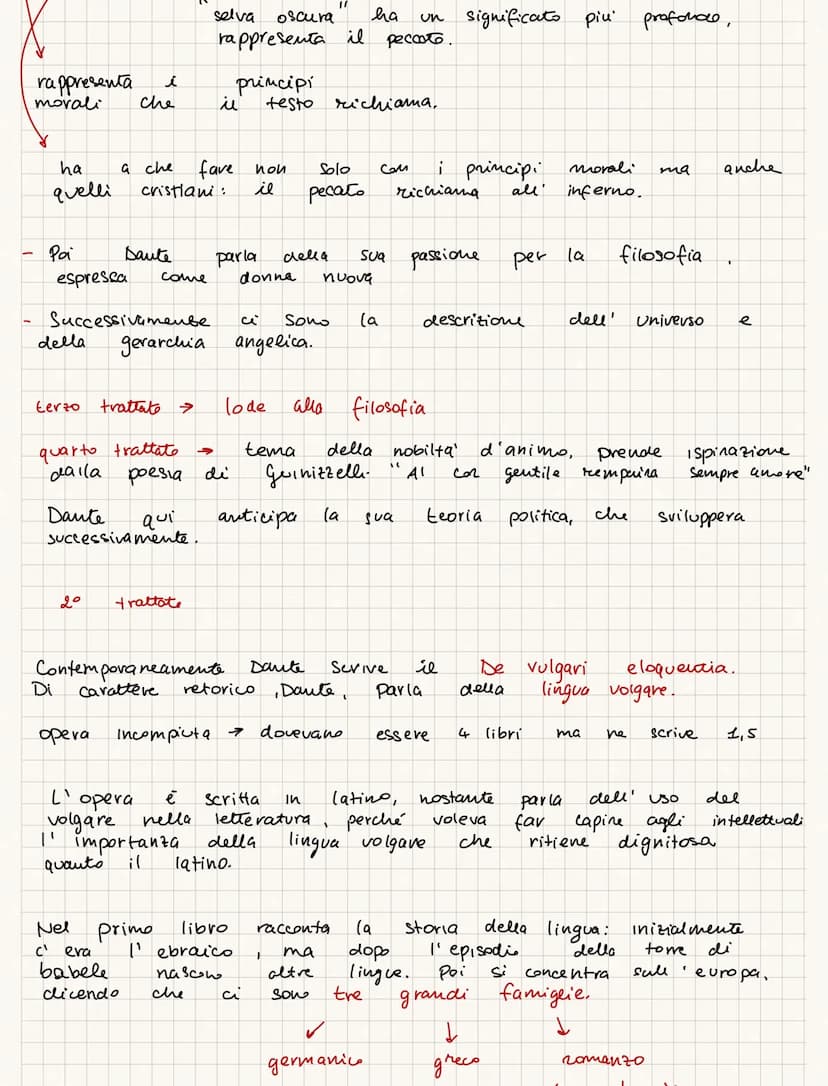 "selva oscura" ha un significato piu' profondo,
rappresenta il peccato.
rappresenta i principi
morali che il testo richiama.
ha a che fare non solo con i principi morali ma anche
quelli cristiani: il pecato richiama all' inferno.
- Poi Dante parla della sua passione per la filosofia,
espressa come donna nuova
- Successivamente ci sono la descrizione dell' universo e
della gerarchia angelica.
terzo trattato → lode alla filosofia
quarto trattato → tema della nobilta' d'animo, prende ispirazione
dalla poesia di Guinizzelli "Al cor gentile rempaira sempre amore"
Dante qui anticipa la sua teoria politica, che sviluppera
successivamente.
2° trattato
Contemporaneamente Dante scrive il De vulgari eloquentia.
Di carattere retorico, Dante, parla della lingua volgare.
opera incompiuta → dovevano essere 4 libri ma ne scrive 1,5
L' opera é scritta in latino, nostante parla dell' uso del
volgare nella letteratura, perché voleva far capire agli intellettuali
l' importanza della lingua volgare che ritiene dignitosa
quanto il latino.
Nel primo libro racconta la storia della lingua: inizialmente
c' era l' ebraico, ma dopo l'episodio della torre di
babele nascono altre lingue. Poi si concentra sull 'europa,
dicendo che ci sono tre grandi famiglie.
germanico ↓ greco ↓ romanzo